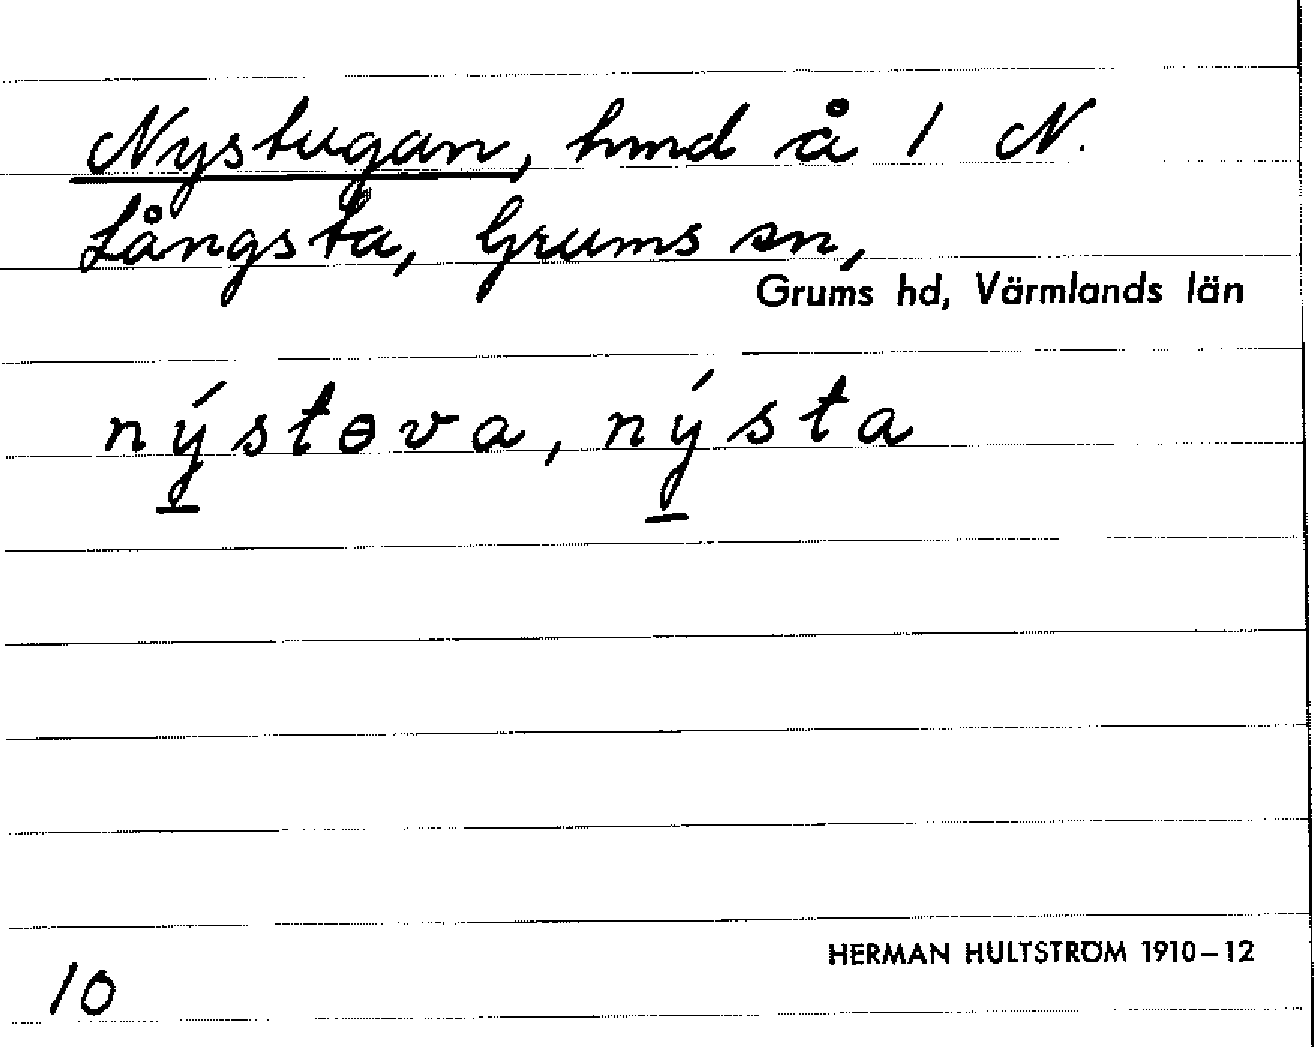 Nystugan, hmd å 1 N.
Långsta, Grums sn,
Grums hd, Värmlands län
nýstɵva, nýsta
HERMAN HULTSTRÖM 1910–12
10